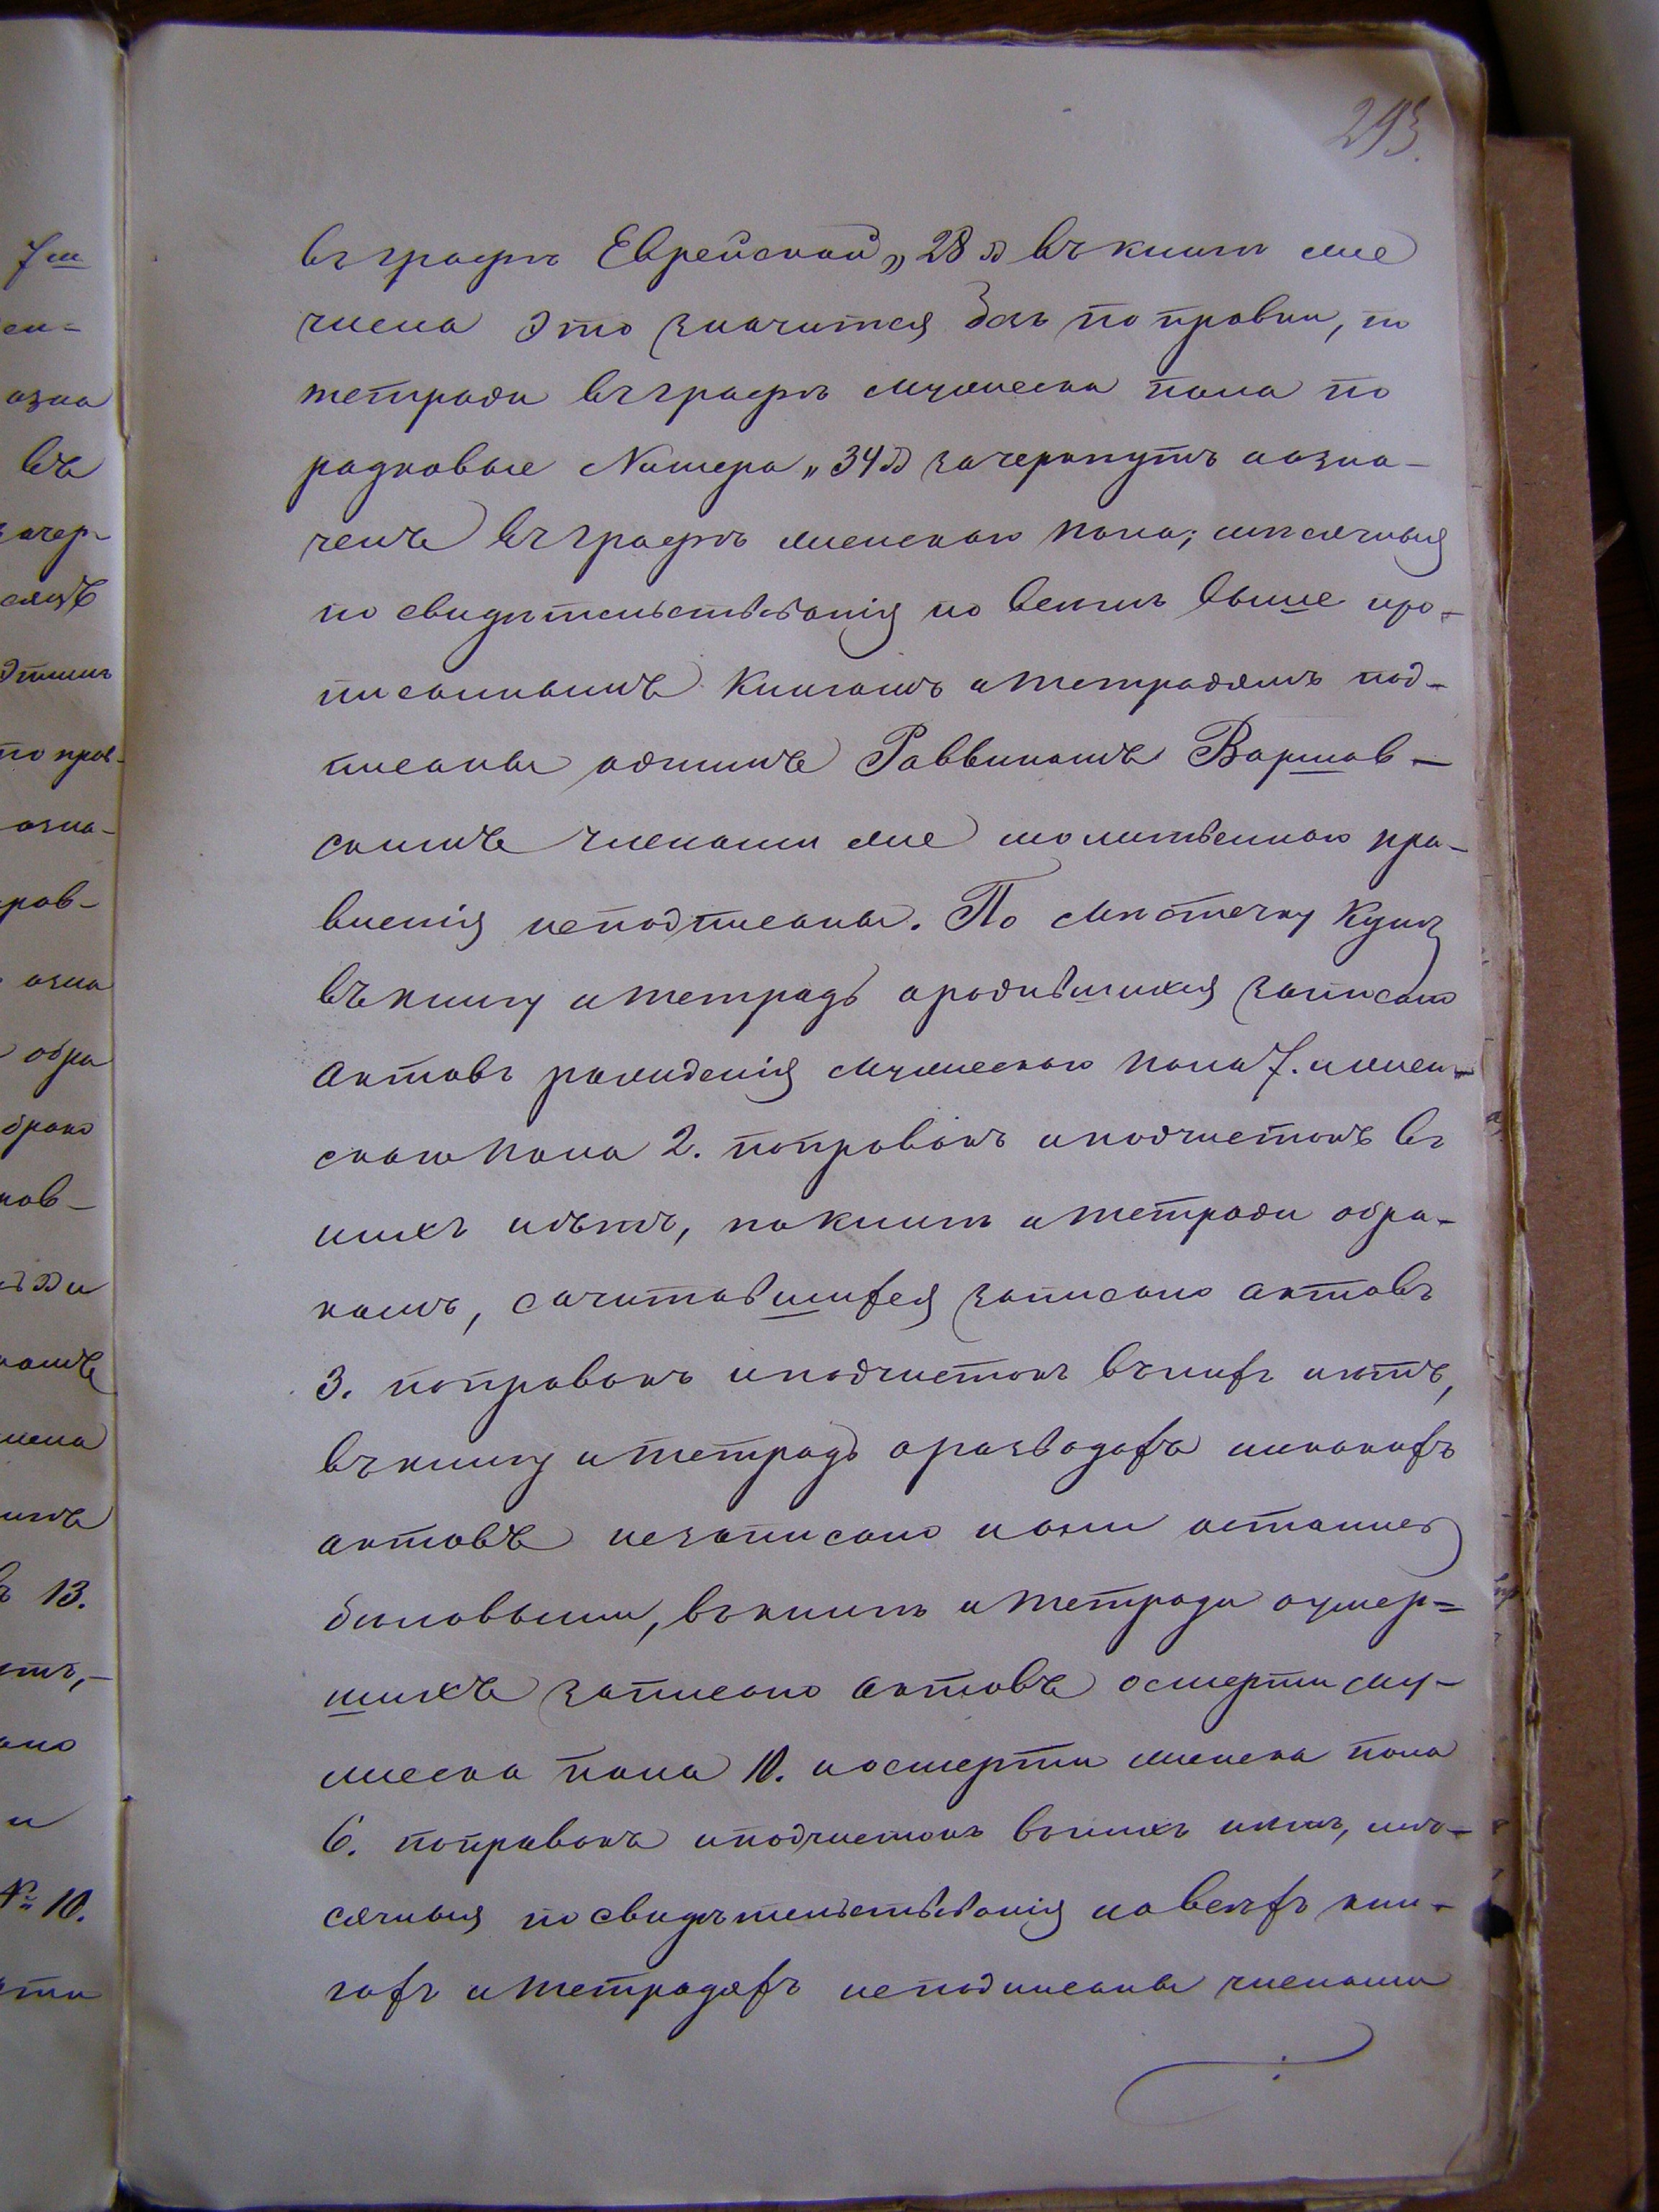 293.
7м
ен-
озна
въ
зачер-
сяцъ
этимъ
поправ-
озна-
рав-
озна
обра
брако
ков-
камъ
мена
13.
ано
и
№ 10.
въ графѣ Еврейской „28" въ книгѣ же
числа это значится безъ поправки, по
тетради въ графѣ мужеска пола по
рядковые Номера „34" зачеркнутъ иозна-
ченъ въ графѣ женскаго пола; мѣсячныя
по свидѣтельствованія по всѣмъ выше про-
писаннымъ книгамъ итетрадямъ под-
писаны однимъ Раввиномъ Варшав-
скимъ членами же молитвеннаго пра-
вленія неподписаны. По мѣстечку Купѣ
въ книгу итетрадь ородившихся записано
актовъ рожденія мужескаго пола 7. иженъ-
скаго пола 2. поправокъ иподчистокъ въ
нихъ нѣтъ, по книгѣ итетради обра-
камъ, сочитавшихся записано актовъ
3. поправокъ иподчистокъ въ нихъ нѣтъ,
въ книгу итетрадь оразводахъ никакихъ
актовъ незаписано иони остались
бѣловыми, въ книгѣ итетради оумер=
шихъ записано актовъ осмерти му-
жеска пола 10. иосмерти женска пола
6. поправокъ иподчистокъ въ нихъ нѣтъ, мѣ-
сячныя по свидѣтельствованія во всѣхъ кни-
гахъ итетрадяхъ неподписаны членами